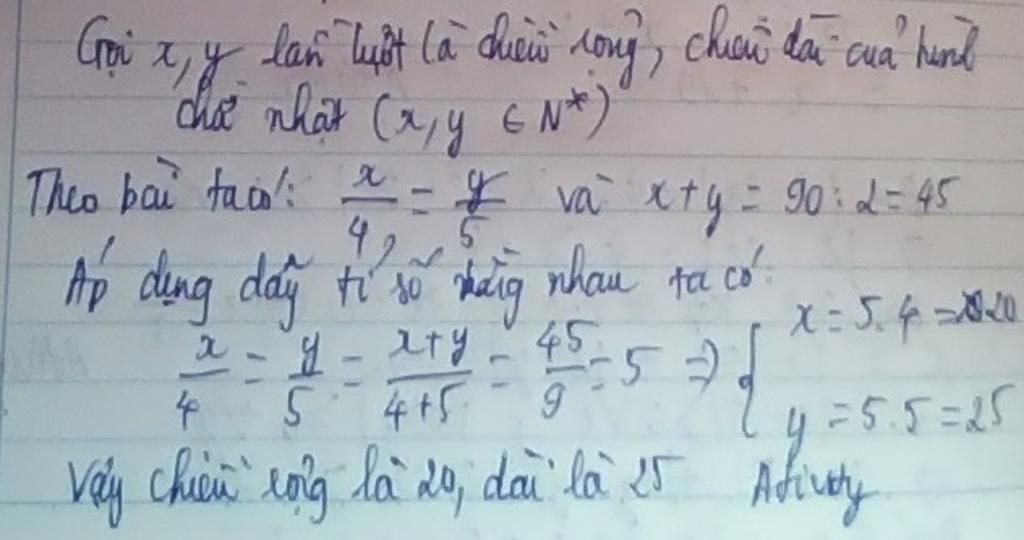 Gọi x, y lần lượt là chiều rộng, chiều dài của hình
chữ nhật (x, y ∈ N*)
Theo bài ta có: x/4 = y/5 và x+y = 90:2=45
Áp dụng dãy tỉ số bằng nhau ta có:
x/4 = y/5 = x+y/4+5 = 45/9 = 5 => { x = 5.4 = 20
y = 5.5 = 25
Vậy chiều rộng là 20, dài là 25